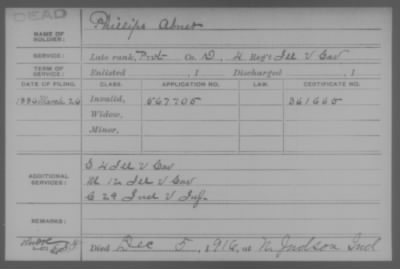 DEAD
NAME OF SOLDIER: Phillips Abner
SERVICE: Late rank, Pvt Co. D, 4 Reg't Ill V Cav
TERM OF SERVICE: Enlisted , 1 Discharged , 1
DATE OF FILING. CLASS. APPLICATION NO. LAW. CERTIFICATE NO.
1886 March 26 Invalid, 567705 361665
Widow,
Minor,
ADDITIONAL SERVICES: G 4 Ill V Cav
M 12 Ill V Cav
C 29 Ind V Inf.
REMARKS:
Died Dec 5, 1916, at N. Judson Ind